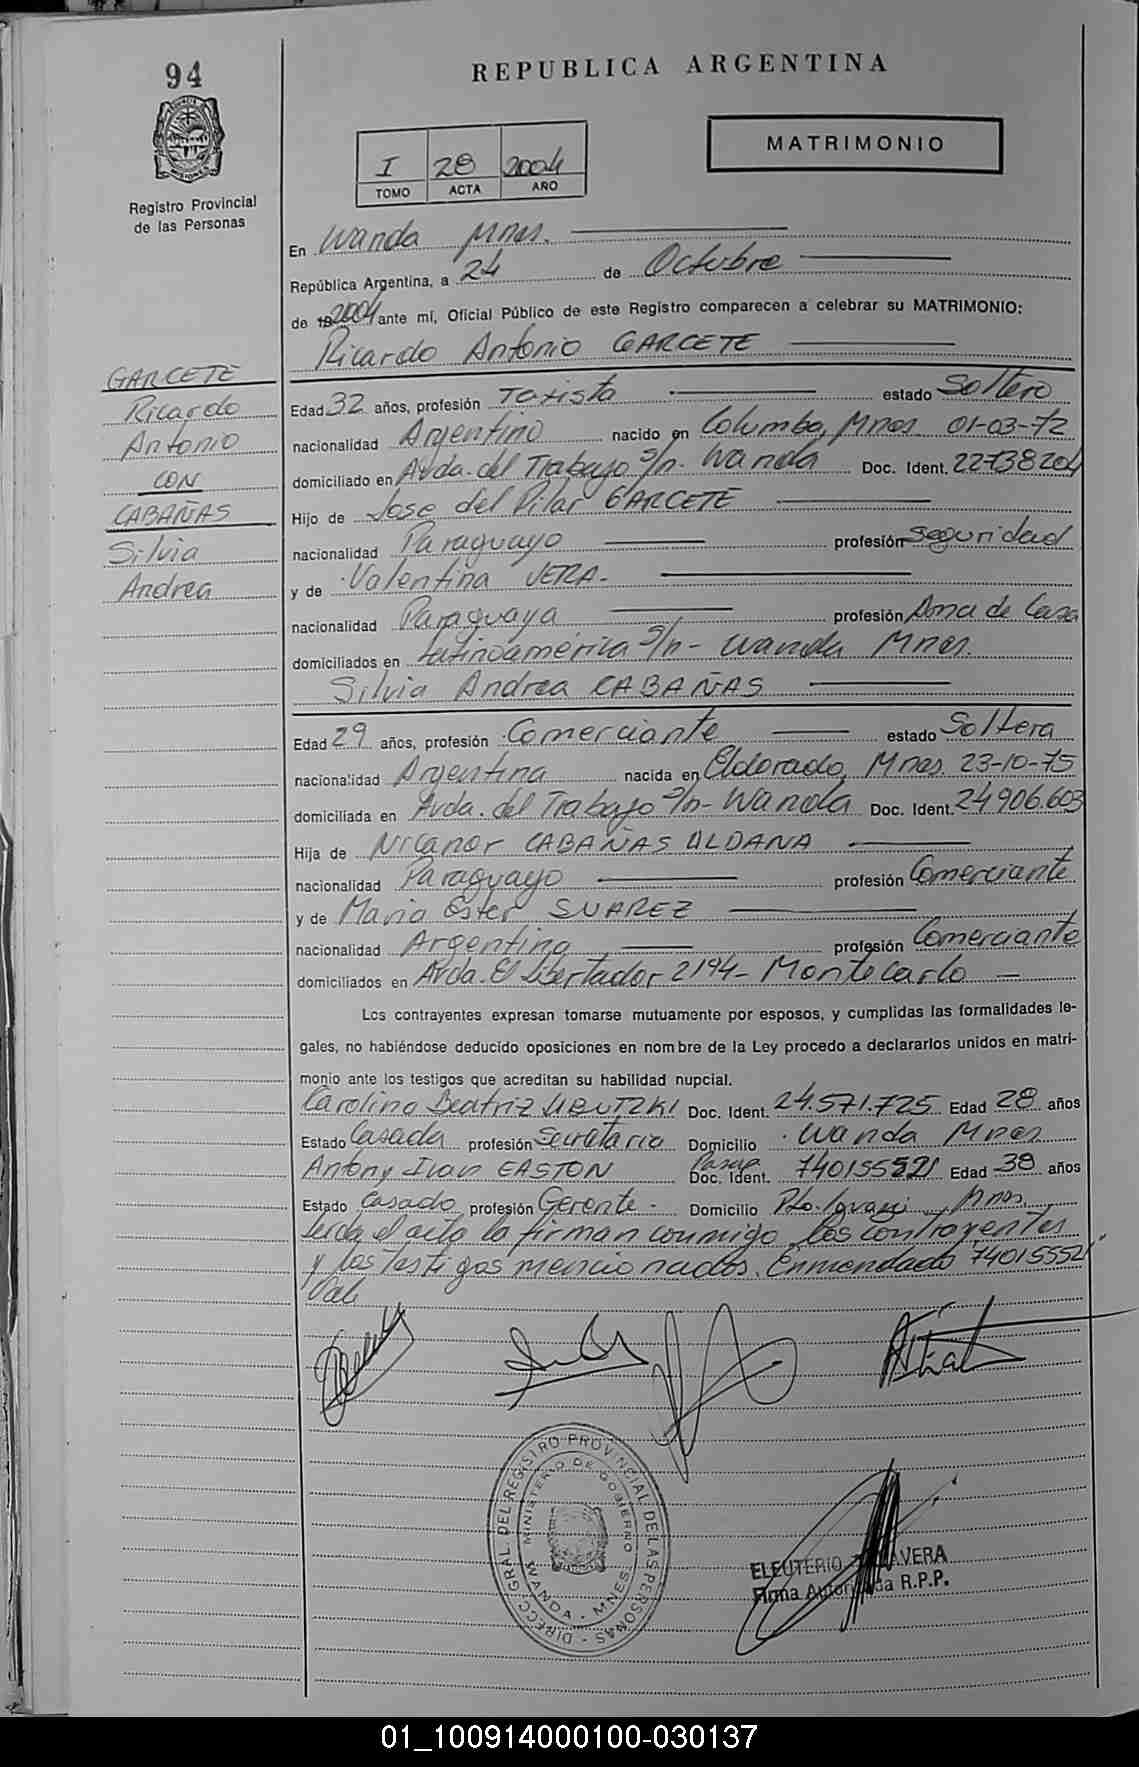 94
REPUBLICA ARGENTINA
MISIONES
Registro Provincial
de las Personas
I 28 2004
TOMO ACTA AÑO
MATRIMONIO
En Wanda Mnes.
República Argentina, a 24 de Octubre
de 2004 ante mí, Oficial Público de este Registro comparecen a celebrar su MATRIMONIO:
Ricardo Antonio GARCETE
GARCETE
Ricardo
Antonio
CON
CABAÑAS
Silvia
Andrea
Edad 32 años, profesión Taxista estado Soltero
nacionalidad Argentino nacido en Columba, Mnes 01-03-72
domiciliado en Avda. del Trabajo s/n. Wanda Doc. Ident. 22738204
Hijo de Jose del Pilar GARCETE
nacionalidad Paraguayo profesión seguridad
y de Valentina VERA.
nacionalidad Paraguaya profesión Ama de Casa
domiciliados en Latinoamérica s/n - Wanda Mnes.
Silvia Andrea CABAÑAS
Edad 29 años, profesión Comerciante estado Soltera
nacionalidad Argentina nacida en Eldorado, Mnes. 23-10-75
domiciliada en Avda. del Trabajo s/n - Wanda Doc. Ident. 24906.603
Hija de Nicanor CABAÑAS ALDANA
nacionalidad Paraguayo profesión Comerciante
y de Maria Ester SUAREZ
nacionalidad Argentina profesión Comerciante
domiciliados en Avda. El Libertador 2194 - Montecarlo
Los contrayentes expresan tomarse mutuamente por esposos, y cumplidas las formalidades le-
gales, no habiéndose deducido oposiciones en nombre de la Ley procedo a declararlos unidos en matri-
monio ante los testigos que acreditan su habilidad nupcial.
Carolina Beatriz Doc. Ident. 24.571.725 Edad 28 años
Estado Casada profesión Secretaria Domicilio Wanda Mnes
Antony Ivan EASTON Pasap Doc. Ident. 740155521 Edad 38 años
Estado Casado profesión Gerente - Domicilio Pto. Iguazú Mnes.
Leida el acta la firman conmigo, los contrayentes
y los testigos mencionados. Enmendado 74015552"
Vale
DIRECC. GRAL. DEL REGISTRO PROVINCIAL DE LAS PERSONAS
MINISTERIO DE GOBIERNO
WANDA - MNES.
ELEUTERIO
Firma Autorizada R.P.P.
01_100914000100-030137